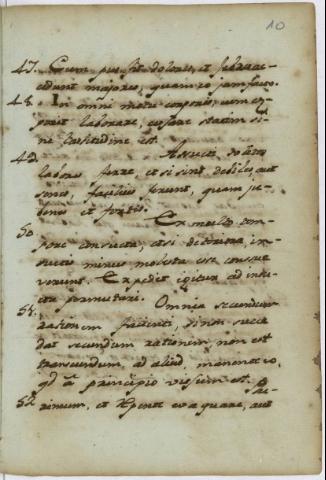 10
47. Cum pus fit dolores, et febres ac-
cedunt majores, quam eo jam facto.
48. In omni motu corporis, cum cœ-
perit laborare, cessare statim si-
ne lassitudine est.
49. Assueti solitos
labores ferre, etsi sint debiles, aut
senes, facilius ferunt, quam ju-
venes et fortes.
50. Ex multo tem-
pore consueta, etsi deteriora, in-
suetis minus molesta esse consue-
verunt. Expedit igitur ad insu-
eta permutari.
Omnia secundum
rationem facienti, si non succe-
dat secundum rationem, non est
transeundum, ad aliud, manente eo,
qd à principio visum est.
rimum, et repente evacuare, aut